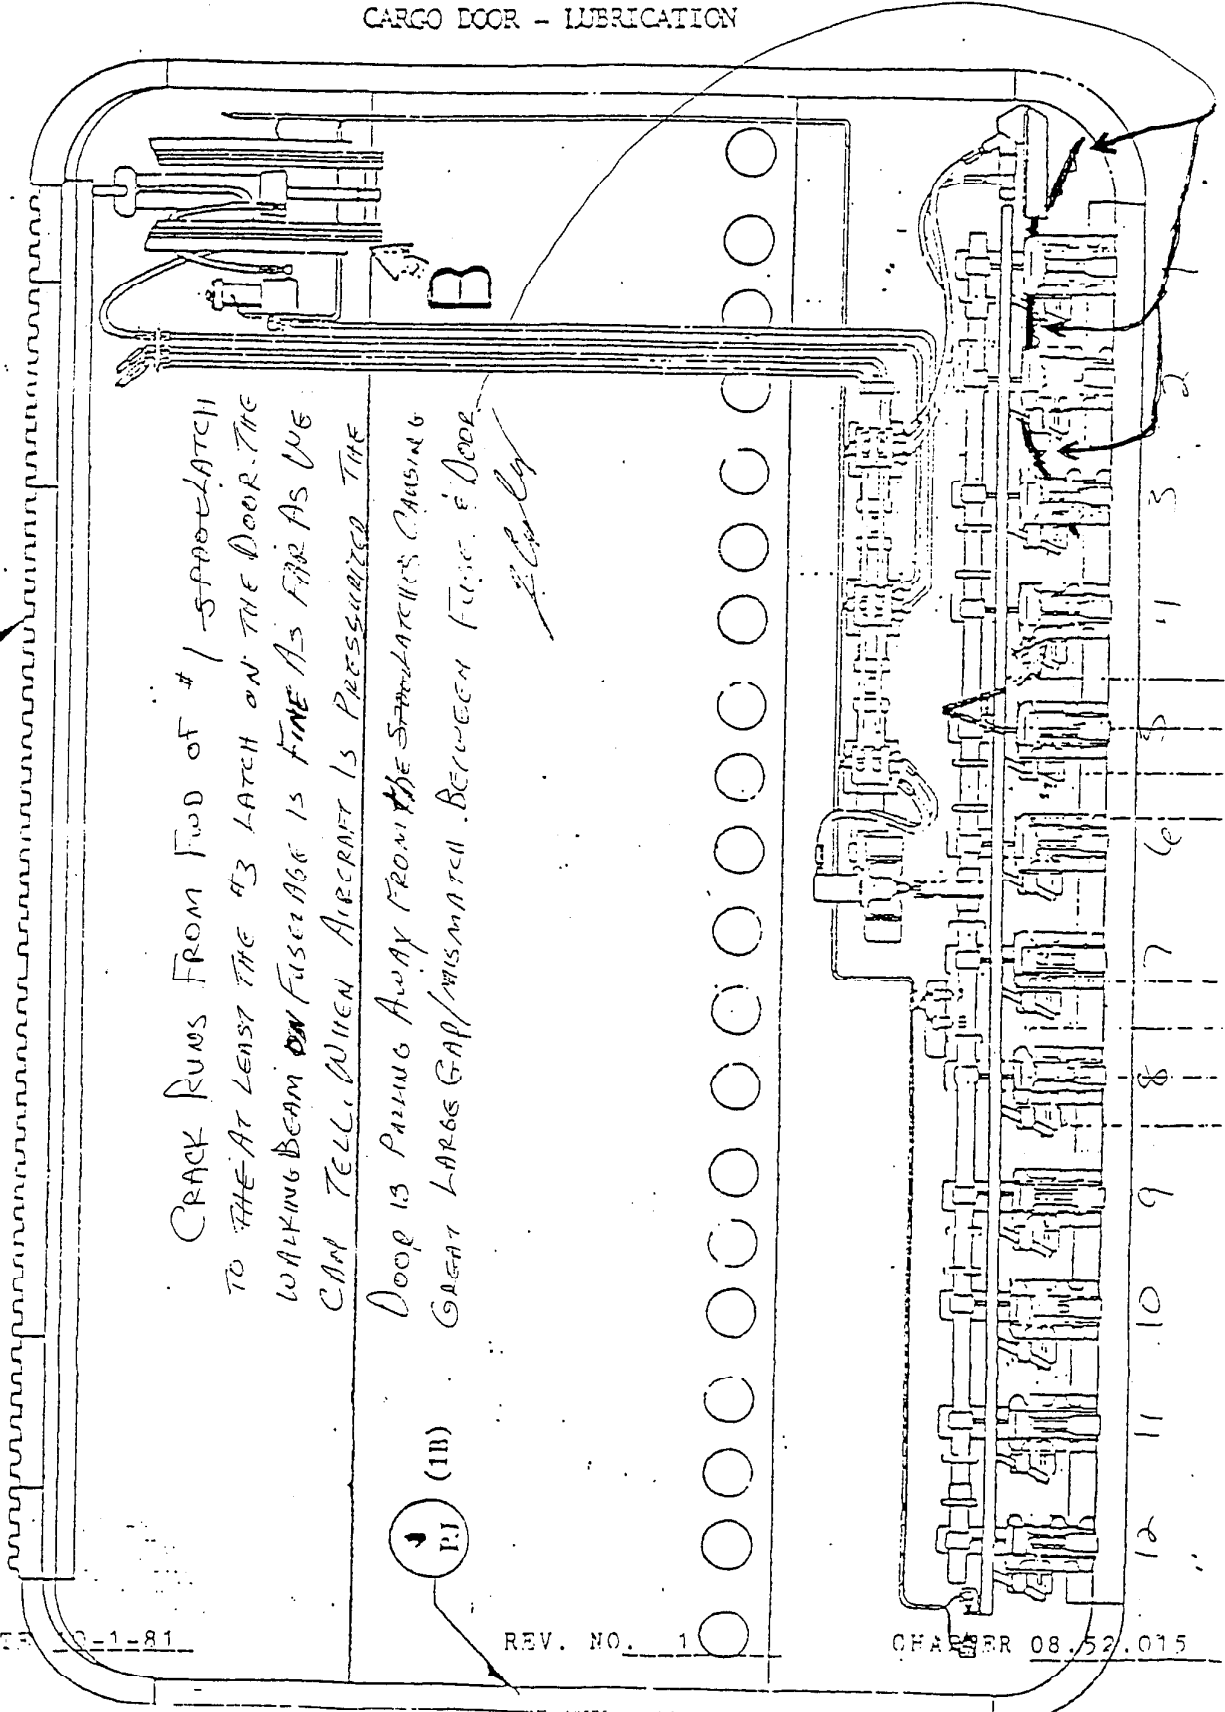 CARGO DOOR - LUBRICATION
B
CRACK RUNS FROM FWD OF #1 SPOOL LATCH
TO THE AT LEAST THE #3 LATCH ON THE DOOR. THE
WALKING BEAM ON FUSELAGE IS FINE AS FAR AS WE
CAN TELL. WHEN AIRCRAFT IS PRESSURIZED THE
DOOR IS PULLING AWAY FROM THE SPOOLATCHES CAUSING
GREAT LARGE GAP/MISMATCH BETWEEN FUSE. & DOOR
1
2
3
4
5
6
7
8
9
10
11
12
(1B)
10-1-81
REV. NO. 1
CHAPTER 08.52.015